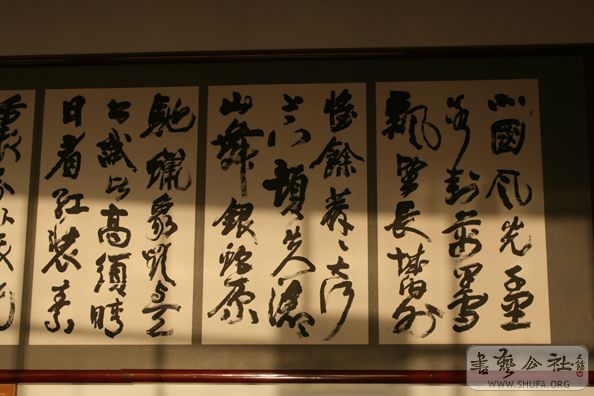 北國风光千里
冰封萬里雪
飘望長城内外
惟餘莽々大河
上下頓失滔々
山舞銀蛇原
馳蠟象欲与天
公試比高須晴
日看红装素
書藝公社
WWW.SHUFA.ORG